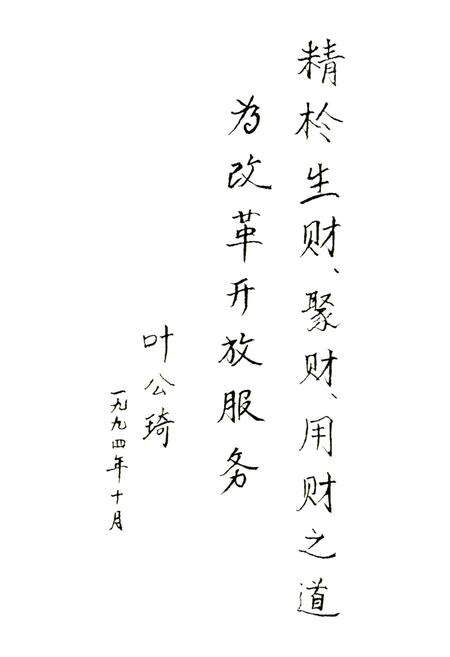 精於生财、聚财、用财之道
为改革开放服务
叶公琦
一九九四年十月